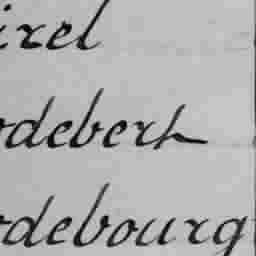 irel
odebert
odebourg